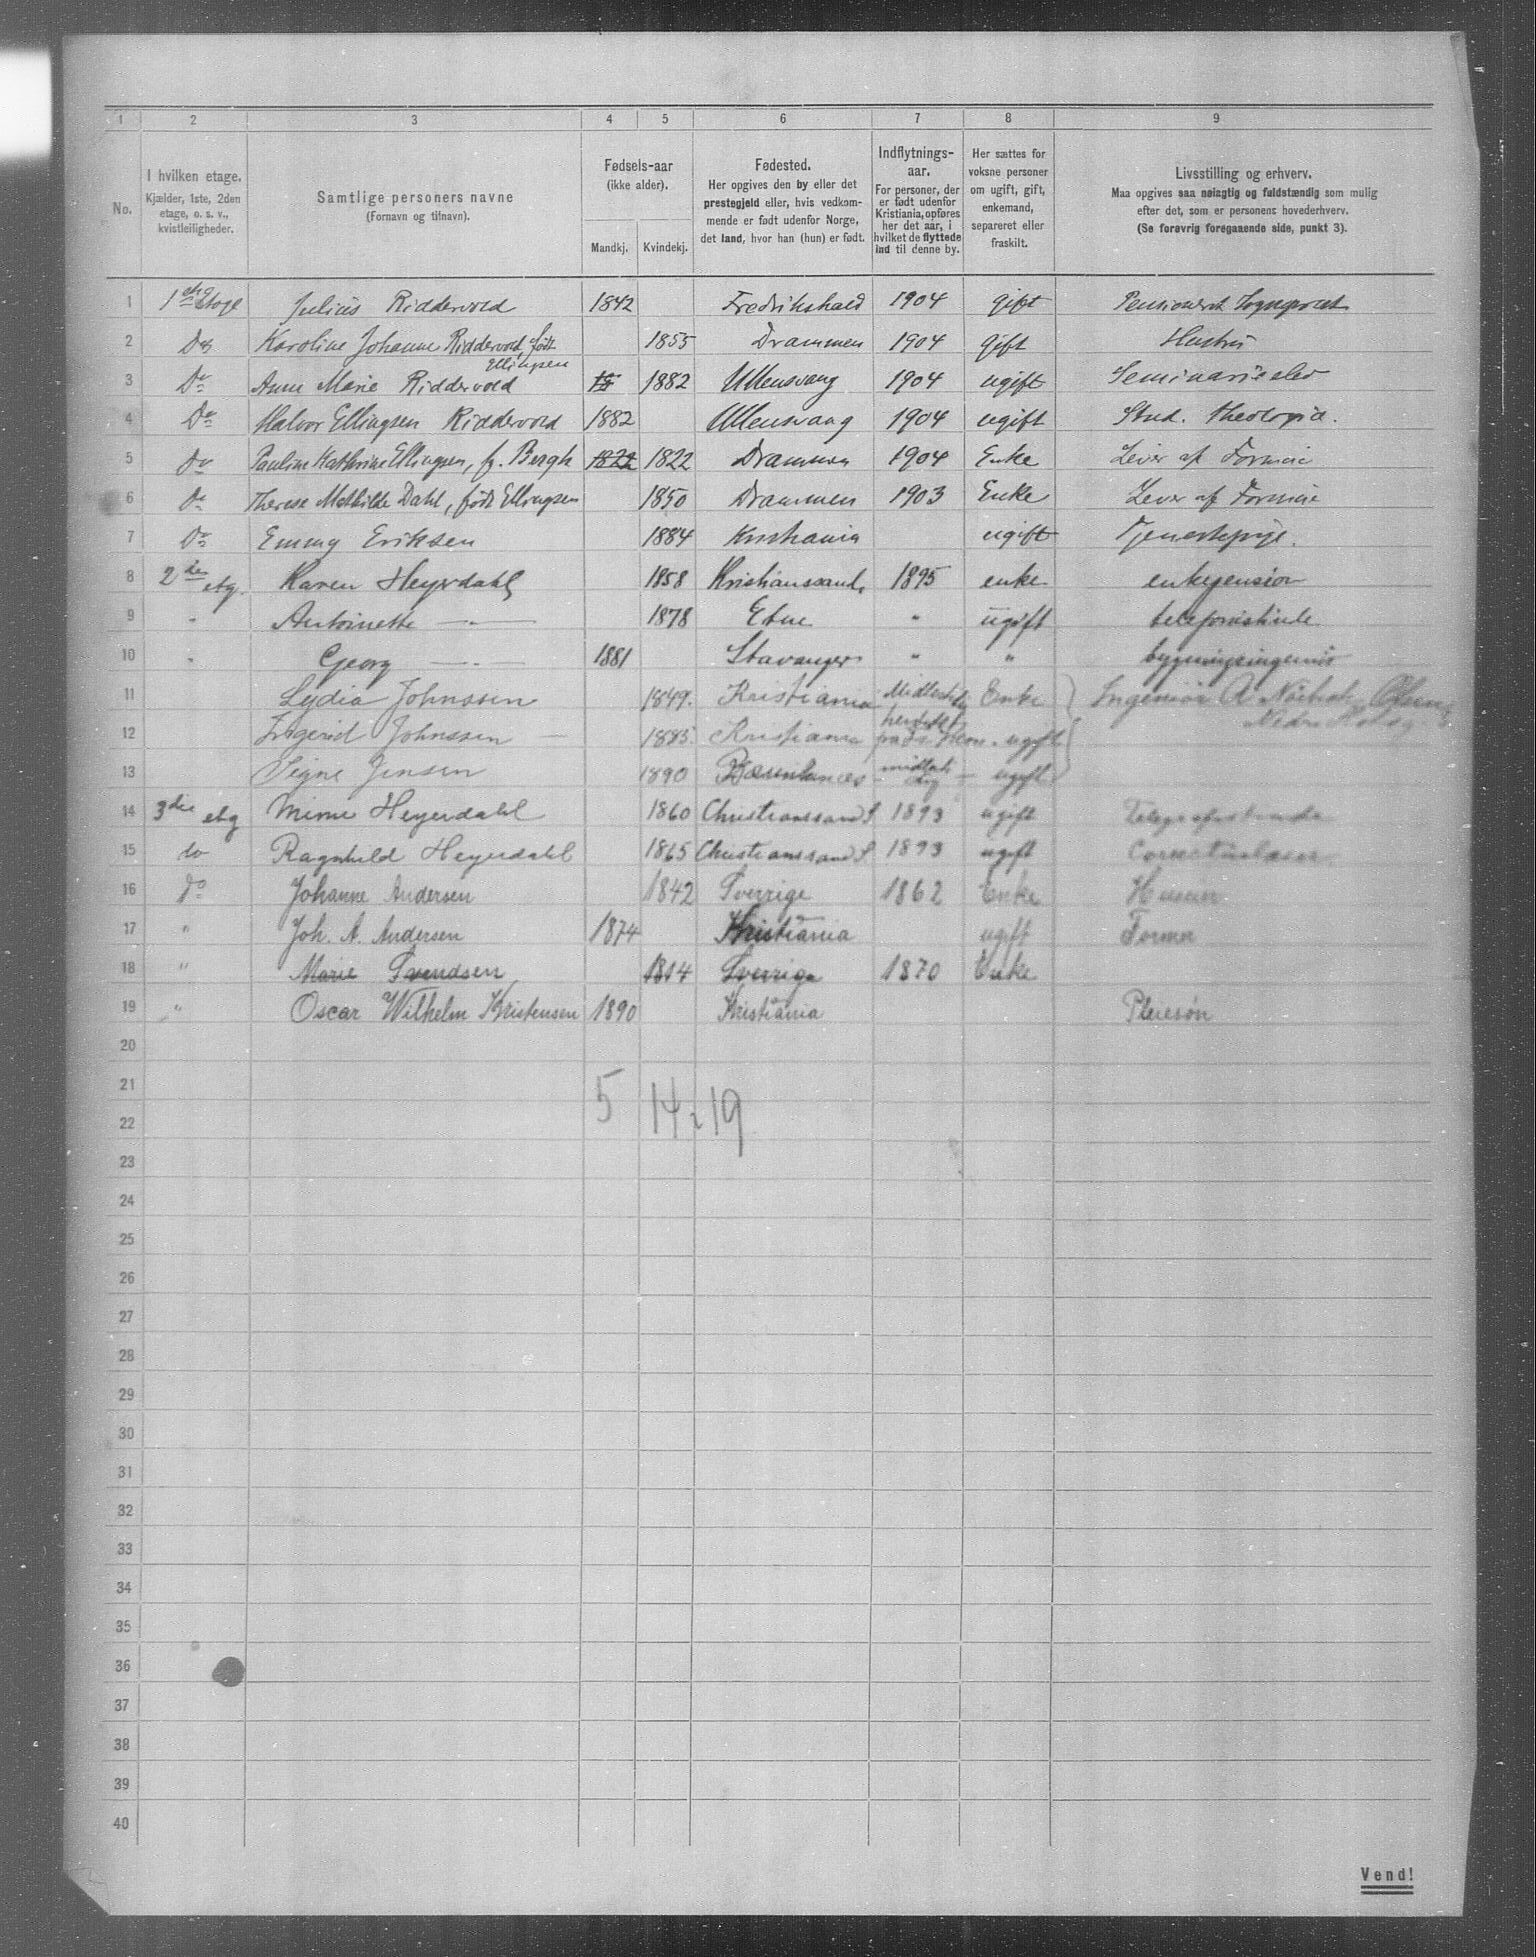 1 2 3 4 5 6 7 8 9
No.
I hvilken etage.
Kjælder, 1ste, 2den
etage, o. s. v.,
kvistleiligheder.
Samtlige personers navne
(Fornavn og tilnavn).
Fødsels-aar
(ikke alder).
Mandkj. Kvindekj.
Fødested.
Her opgives den by eller det
prestegjeld eller, hvis vedkom-
mende er født udenfor Norge,
det land, hvor han (hun) er født.
Indflytnings-
aar.
For personer, der
er født udenfor
Kristiania, opføres
her det aar, i
hvilket de flyttede
ind til denne by.
Her sættes for
voksne personer
om ugift, gift,
enkemand,
separeret eller
fraskilt.
Livsstilling og erhverv.
Maa opgives saa nøiagtig og fuldstændig som mulig
efter det, som er personens hovederhverv.
(Se forøvrig foregaaende side, punkt 3).
1 1ste Etage Julius Riddervold 1842 Fredrikshald 1904 gift Pensioneret Sogneprest
2 Do Karoline Johanne Riddervold, født Ellingsen 1855 Drammen 1904 gift Hustru
3 Do Anne Marie Riddervold 1882 Ullensvang 1904 ugift Seminarieelev
4 Do Halvor Ellingsen Riddervold 1882 Ullensvang 1904 ugift Stud. theologia.
5 Do Pauline Kathrine Ellingsen, f. Bergh 1822 1822 Drammen 1904 Enke Lever af Formue
6 Do Therese Mathilde Dahl, født Ellingsen 1850 Drammen 1903 Enke Lever af Formue
7 Do Emmy Eriksen 1884 Kristiania ugift Tjenestepige.
8 2den etg. Karen Heyerdahl 1858 Kristianssand. 1895 enke enkepension
9 " Antoinette —"— 1878 Etne " ugift telefonistinde
10 " Georg —"— 1881 Stavanger " " bygningsingeniør
11 Lydia Johnssen 1849. Kristiania Enke Ingeniør A
12 Ingerid Johnssen 1885. Kristiania ugift
13 Signe Jensen 1890 ugift
14 3die etg Mimi Heyerdahl 1860 Christianssand S 1893 ugift Telegrafistinde
15 do Ragnhild Heyerdahl 1865 Christianssand S 1893 ugift
16 do Johanne Andersen 1842 Sverrige 1862 Enke Husmor
17 " Joh. A. Andersen 1874 Kristiania ugift Former
18 " Marie Svendsen 1814 Sverrige 1870 Enke
19 " Oscar Wilhelm Kristensen 1890 Kristiania Pleiesøn
20
21 5 14 = 19
22
23
24
25
26
27
28
29
30
31
32
33
34
35
36
37
38
39
40
Vend!